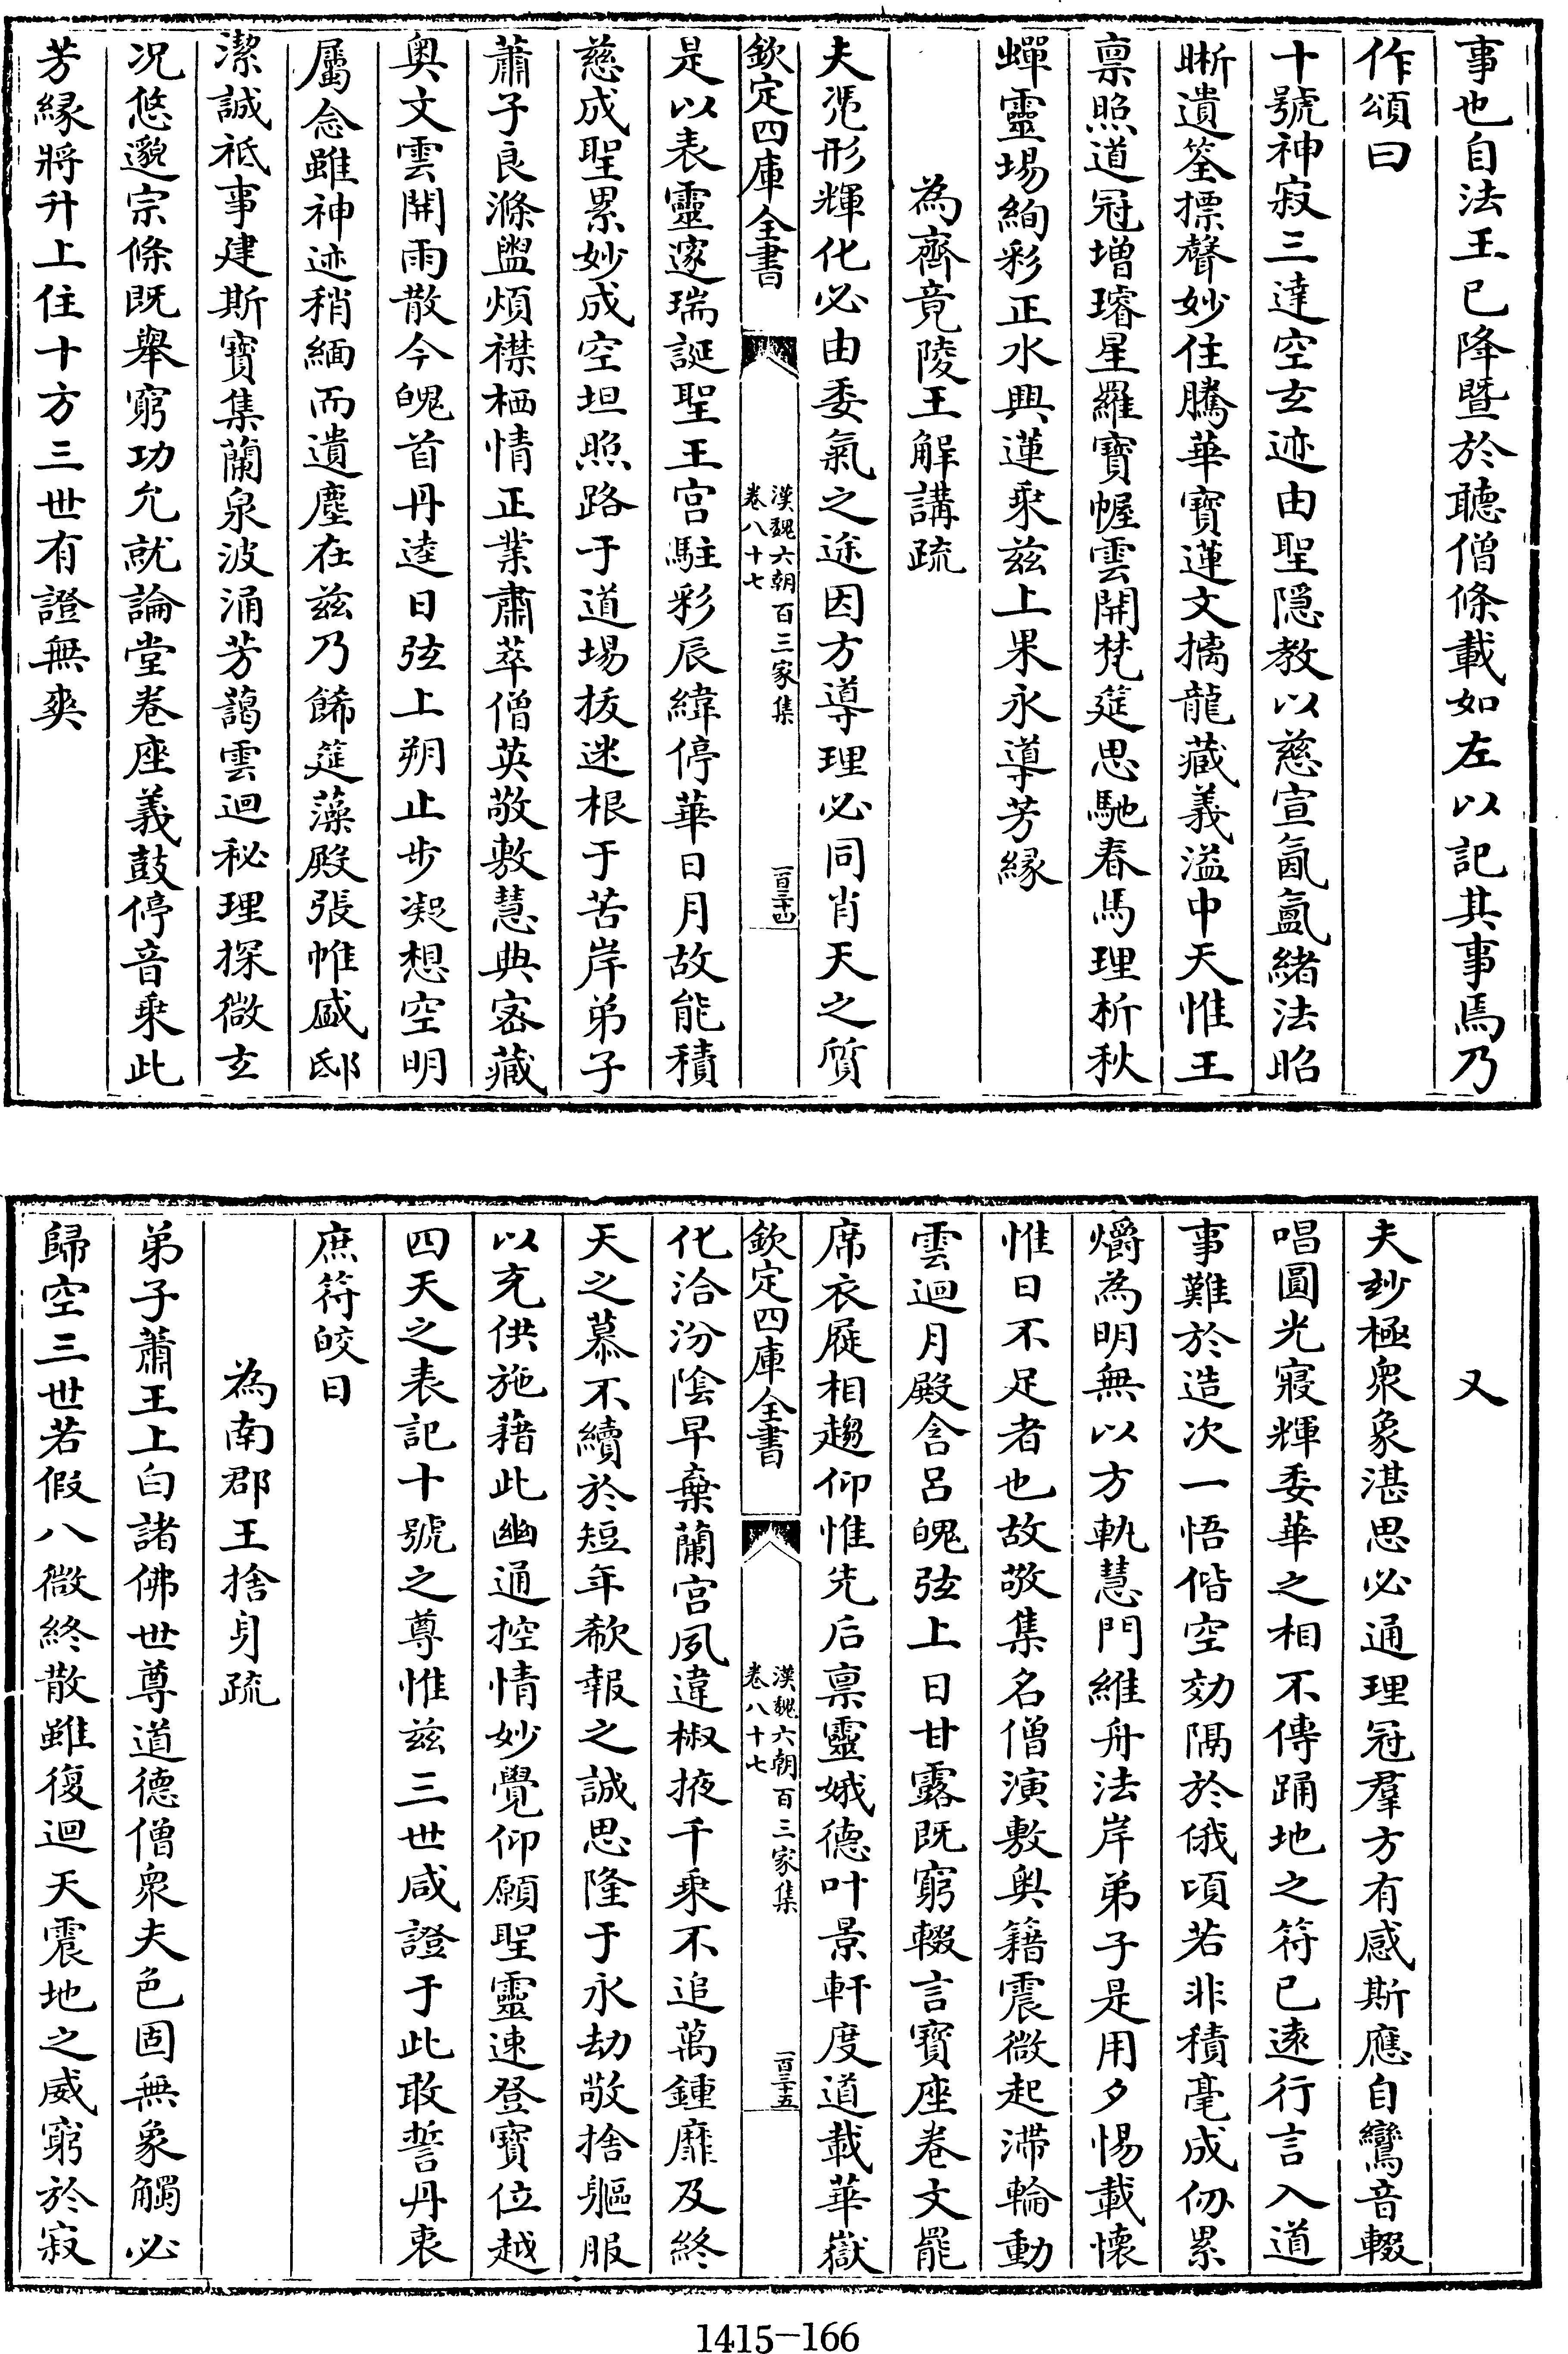 事也自法王已降暨於聽僧條載如左以記其事焉乃
作頌曰
十號神寂三達空玄迹由聖隠教以慈宣氤氳緒法昭
晰遺筌摽聲妙住騰華寶蓮文摛龍藏義溢中天惟王
禀照道冠増璿星羅寶幄雲開梵筵思馳春馬理析秋
蟬靈場絢彩正水興蓮乘兹上果永導芳縁
為齊竟陵王解講疏
夫憑形輝化必由委氣之途因方導理必同肖天之質
欽定四庫全書
漢魏六朝百三家集
卷八十七
一百三十四
是以表靈邃瑞誕聖王宫駐彩辰緯停華日月故能積
慈成聖累妙成空坦照路于道場拔迷根于苦岸弟子
蕭子良滌盥煩襟栖情正業肅萃僧英敬敷慧典宻藏
奥文雲開雨散今魄首丹逵日弦上朔止步凝想空明
屬念雖神迹稍緬而遺塵在兹乃餙筵藻殿張帷盛邸
潔誠祗事建斯寶集蘭泉波涌芳藹雲迴秘理探微玄
况悠邈宗條既舉窮功允就論堂卷座義鼓停音乘此
芳縁將升上住十方三世有證無爽
又
夫玅極衆象湛思必通理冠羣方有感斯應自鸞音輟
唱圓光寢輝委華之相不傳踊地之符已遠行言入道
事難於造次一悟偕空効隅於俄頃若非積毫成仞累
爝為明無以方軌慧門維舟法岸弟子是用夕惕載懷
惟日不足者也故敬集名僧演敷奥籍震微起滯輪動
雲迴月殿含呂魄弦上日甘露既窮輟言寶座卷文罷
席衣屣相趨仰惟先后禀靈娥德叶景軒度道載華嶽
欽定四庫全書
漢魏六朝百三家集
卷八十七
一百三十五
化洽汾隂早棄蘭宫夙違椒掖千乘不追萬鍾靡及終
天之慕不續於短年欷報之誠思隆于永劫敬捨軀服
以充供施藉此幽通控情妙覺仰願聖靈速登寶位越
四天之表記十號之尊惟兹三世咸證于此敢誓丹衷
庶符皎日
為南郡王捨身疏
弟子蕭王上白諸佛世尊道德僧衆夫色固無象觸必
歸空三世若假八微終散雖復迴天震地之威窮於寂
1415-166